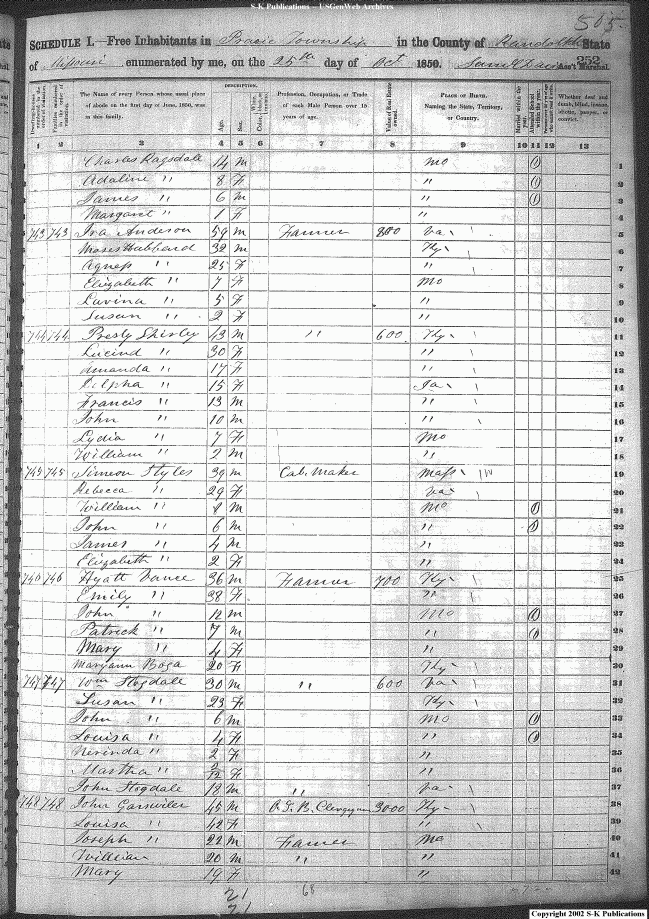 S-K Publications - USGenWeb Archives
505
SCHEDULE I.—Free Inhabitants in Prarie Township in the County of Randolph State
of Missouri enumerated by me, on the 25th day of Oct 1850. Ass't Marshal.
252
DESCRIPTION.
The Name of every Person whose usual place of abode on the first day of June, 1850, was in this family.
Age.
Sex.
Profession, Occupation, or Trade of each Male Person over 15 years of age.
Value of Real Estate owned.
PLACE OF BIRTH. Naming the State, Territory, or Country.
Whether deaf and dumb, blind, insane, idiotic, pauper, or convict.
1 2 3 4 5 6 7 8 9 10 11 12 13
Charles Ragsdale 14 M Mo (1) 1
Adaline " 8 F " (1) 2
James " 6 M " (1) 3
Margaret " 1 F " 4
743 743 Ira Anderson 59 M Farmer 800 Va 5
Moses Hubbard 32 M Ky 6
Agness " 25 F " 7
Elizabeth " 7 F Mo 8
Lavina " 5 F " 9
Susan " 2 F " 10
744 744 Presly Shirley 43 M " 600 Ky 11
Lucind " 30 F " 12
Amanda " 17 F " 13
15 F 14
Francis " 13 M " 15
John " 10 M " 16
Lydia " 7 F Mo 17
William " 2 M " 18
745 745 Simeon Styles 39 M Cab. Maker Mass 19
Rebecca " 29 F Va 20
William " 8 M Mo (1) 21
John " 6 M " (1) 22
James " 4 M " 23
Elizabeth " 2 F " 24
746 746 Hyatt Vance 36 M Farmer 700 Ky 25
Emily " 38 F " 26
John " 12 M Mo (1) 27
Patrick " 7 M " (1) 28
Mary " 4 F " 29
Maryann Boga 20 F Ky 30
747 747 Wm Stogdale 30 M " 600 Va 31
Susan " 23 F Ky 32
John " 6 M Mo (1) 33
Louisa " 4 F " (1) 34
Nerinda " 2 F " 35
Martha " 2/12 F " 36
John Stogdale 18 M " Va 37
748 748 John Garswiler 45 M O.S.B. Clergyman 3000 Ky 38
Louisa " 42 F " 39
Joseph " 22 M Farmer Mo 40
William 20 M " " 41
Mary 19 F " 42
21
21
68
Copyright 2002 S-K Publications